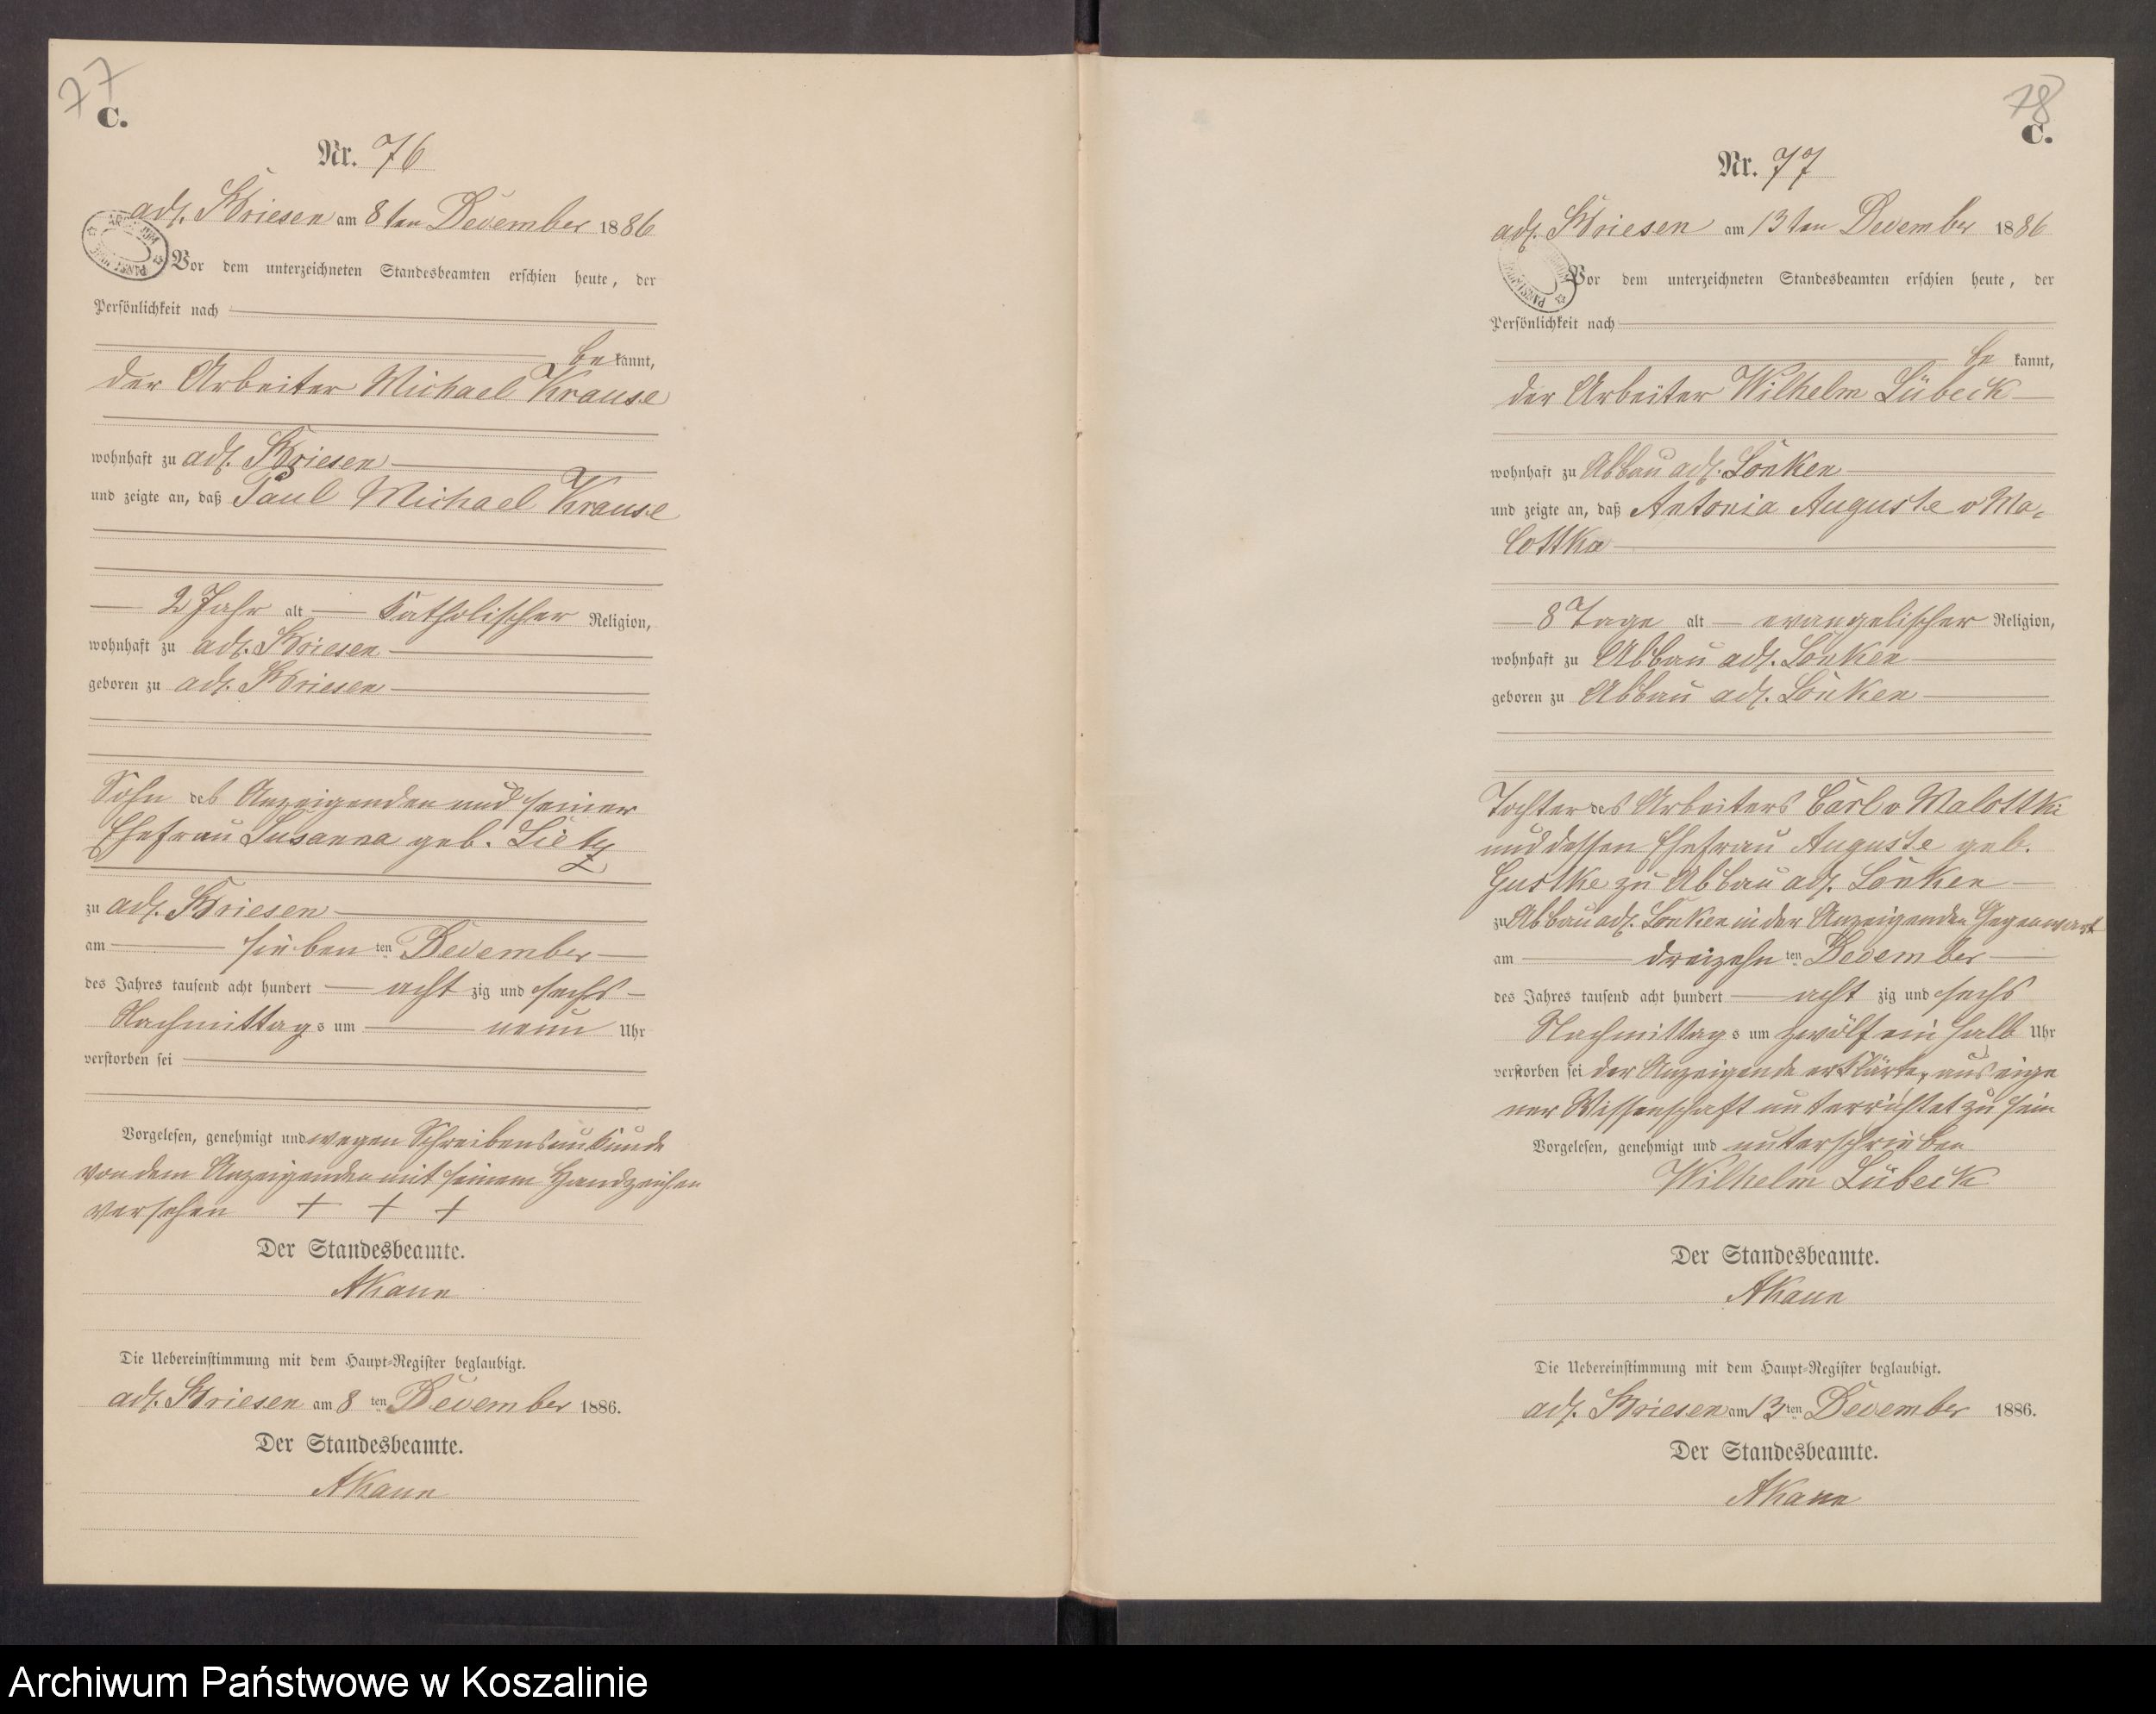 77
C.
Nr. 76
adl. Briesen am 8ten December 1886
Vor dem unterzeichneten Standesbeamten erschien heute, der
Persönlichkeit nach
be kannt,
der Arbeiter Michael Krause
wohnhaft zu adl. Briesen
und zeigte an, daß Paul Michael Krause
2 Jahr alt katholischer Religion,
wohnhaft zu adl. Briesen
geboren zu adl. Briesen
Sohn des Anzeigenden und seiner
Ehefrau Susanna geb. Lietz
zu adl. Briesen
am sieben ten December
des Jahres tausend acht hundert acht zig und sechs
Nachmittags um neun Uhr
verstorben sei
Vorgelesen, genehmigt und wegen Schreibensunkunde
von dem Anzeigenden mit seinem Handzeichen
versehen + + +
Der Standesbeamte.
Die Uebereinstimmung mit dem Haupt-Register beglaubigt.
adl. Briesen am 8 ten December 1886.
Der Standesbeamte.
78
C.
Nr. 77
adl. Briesen am 13ten December 1886
Vor dem unterzeichneten Standesbeamten erschien heute, der
Persönlichkeit nach
be kannt,
der Arbeiter Wilhelm Lübeck
wohnhaft zu Abbau adl. Lonken
und zeigte an, daß Antonia Auguste v Ma-
lottka
8 Tage alt evangelischer Religion,
wohnhaft zu Abbau adl. Lonken
geboren zu Abbau adl. Lonken
Tochter des Arbeiters Carl v Malottki
und dessen Ehefrau Auguste geb.
Gustke zu Abbau adl. Lonken
zu Abbau adl. Lonken in der Anzeigenden Gegenwart
am dreizehn ten December
des Jahres tausend acht hundert acht zig und sechs
Nachmittags um zwölf ein halb Uhr
verstorben sei der Anzeigende erklärte, aus eige
ner Wissenschaft unterrichtet zu sein
Vorgelesen, genehmigt und unterschrieben
Wilhelm Lübeck
Der Standesbeamte.
Die Uebereinstimmung mit dem Haupt-Register beglaubigt.
adl. Briesen am 13 ten December 1886.
Der Standesbeamte.
Archiwum Państwowe w Koszalinie